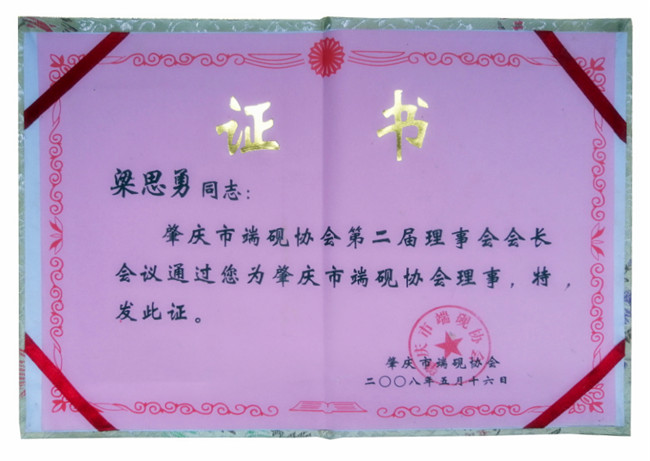 证 书
梁思勇同志：
肇庆市端砚协会第二届理事会会长
会议通过您为肇庆市端砚协会理事，特，
发此证。
肇庆市端砚协会
肇庆市端砚协会
二〇〇八年五月十六日